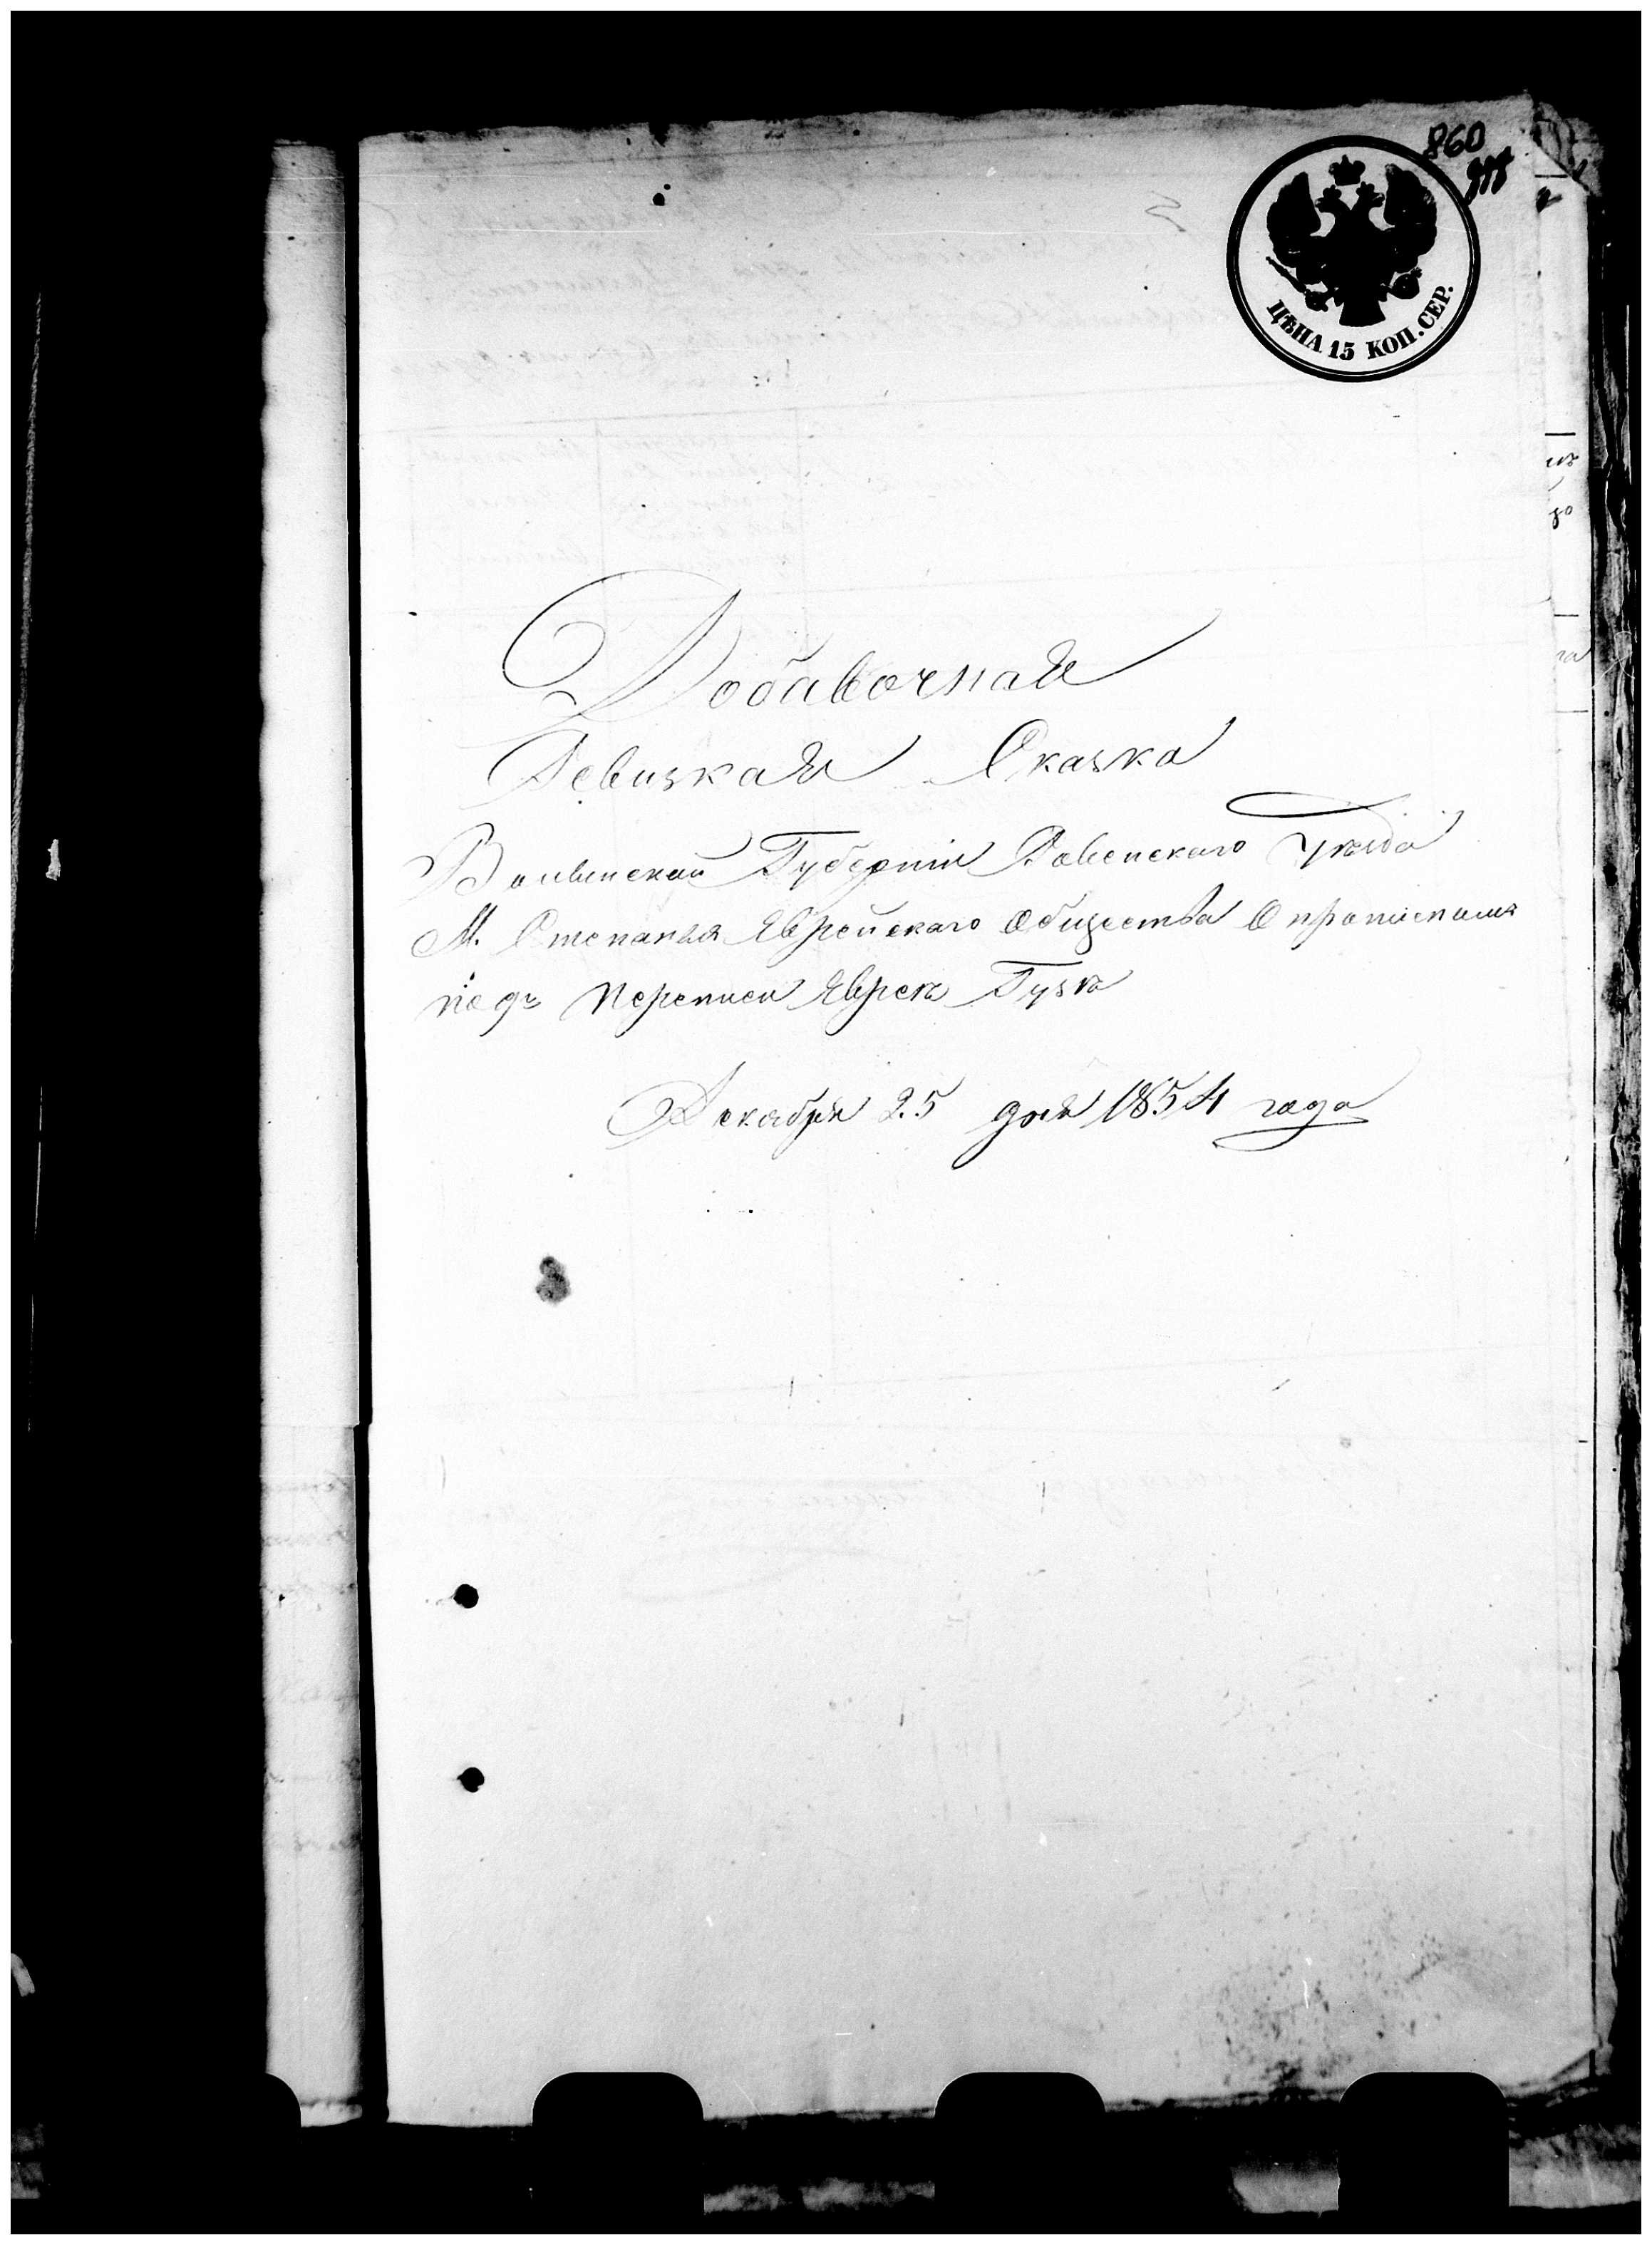 860
ЦѢНА 15 КОП. СЕР.
Добавочная
Ревизкая Сказка
Волынской Губерніи Ровенскаго Уѣзда
М. Степаня Еврейскаго Общества О
подъ Переписи Евреѣ
Декабря 25 дня 1854 года